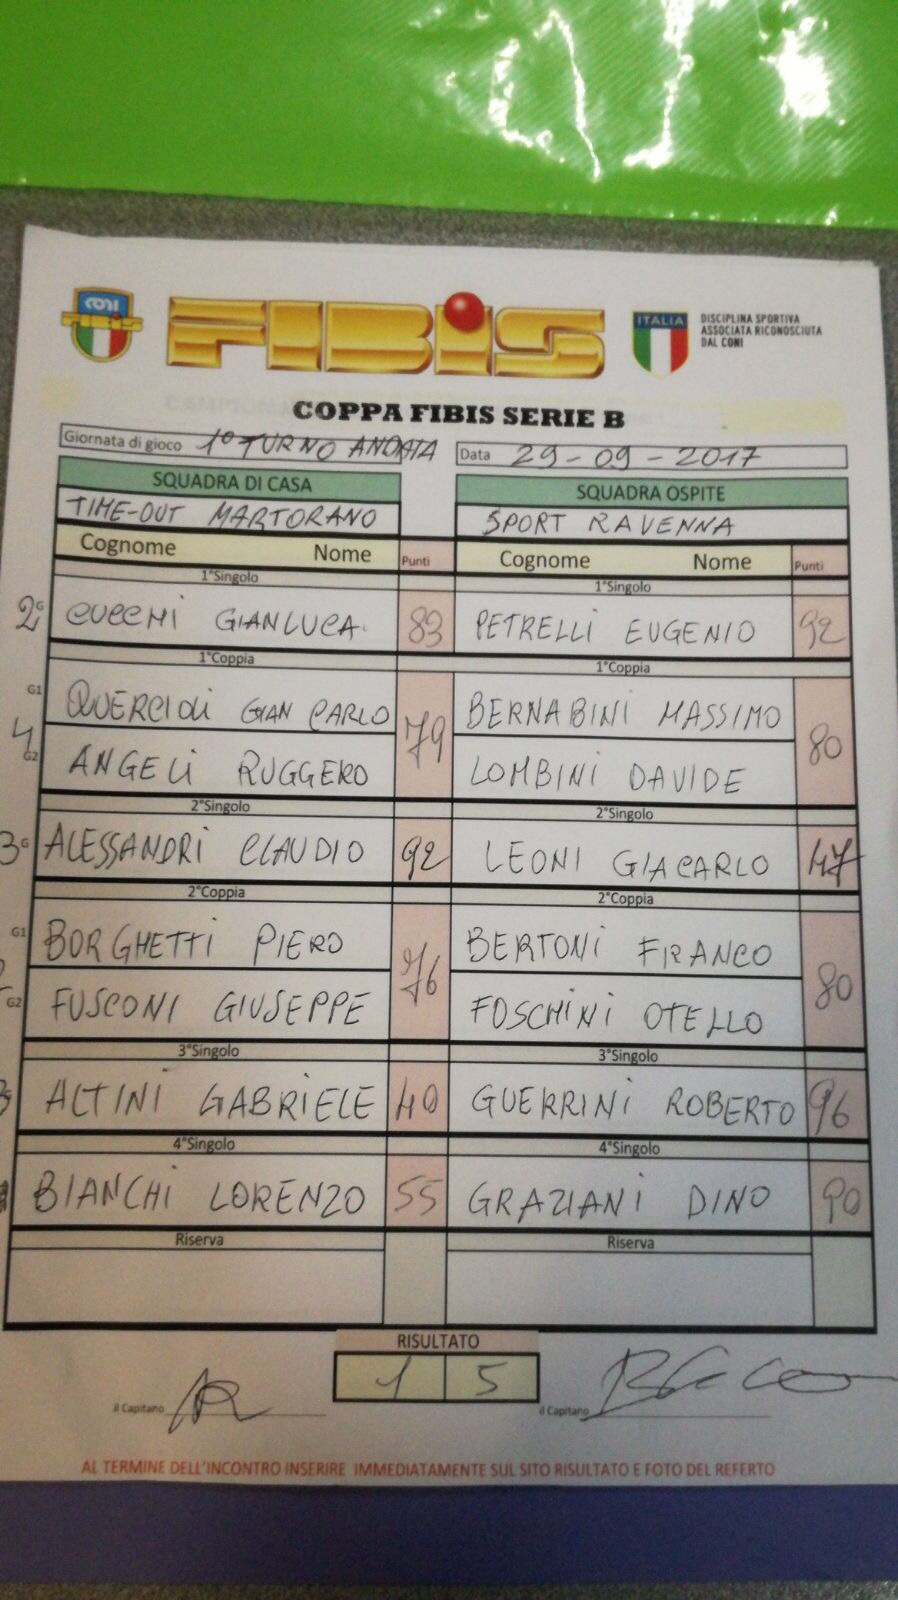 CONI
FIBIS
ITALIA
DISCIPLINA SPORTIVA
ASSOCIATA RICONOSCIUTA
DAL CONI
COPPA FIBIS SERIE B
Giornata di gioco 1° TURNO ANDATA Data 29-09-2017
SQUADRA DI CASA SQUADRA OSPITE
TIME-OUT MARTORANO SPORT RAVENNA
Cognome Nome Punti Cognome Nome Punti
1°Singolo 1°Singolo
2 G CUCCHI GIANLUCA 83 PETRELLI EUGENIO 92
1°Coppia 1°Coppia
G1 QUERCIOLI GIAN CARLO BERNABINI MASSIMO
4 79 80
G2 ANGELI RUGGERO LOMBINI DAVIDE
2°Singolo 2°Singolo
3 G ALESSANDRI CLAUDIO 92 LEONI GIACARLO 47
2°Coppia 2°Coppia
G1 BORGHETTI PIERO BERTONI FRANCO
76 80
G2 FUSCONI GIUSEPPE FOSCHINI OTELLO
3°Singolo 3°Singolo
ALTINI GABRIELE 40 GUERRINI ROBERTO 96
4°Singolo 4°Singolo
BIANCHI LORENZO 55 GRAZIANI DINO 90
Riserva Riserva
RISULTATO
1 5
il Capitano il Capitano
AL TERMINE DELL'INCONTRO INSERIRE IMMEDIATAMENTE SUL SITO RISULTATO E FOTO DEL REFERTO